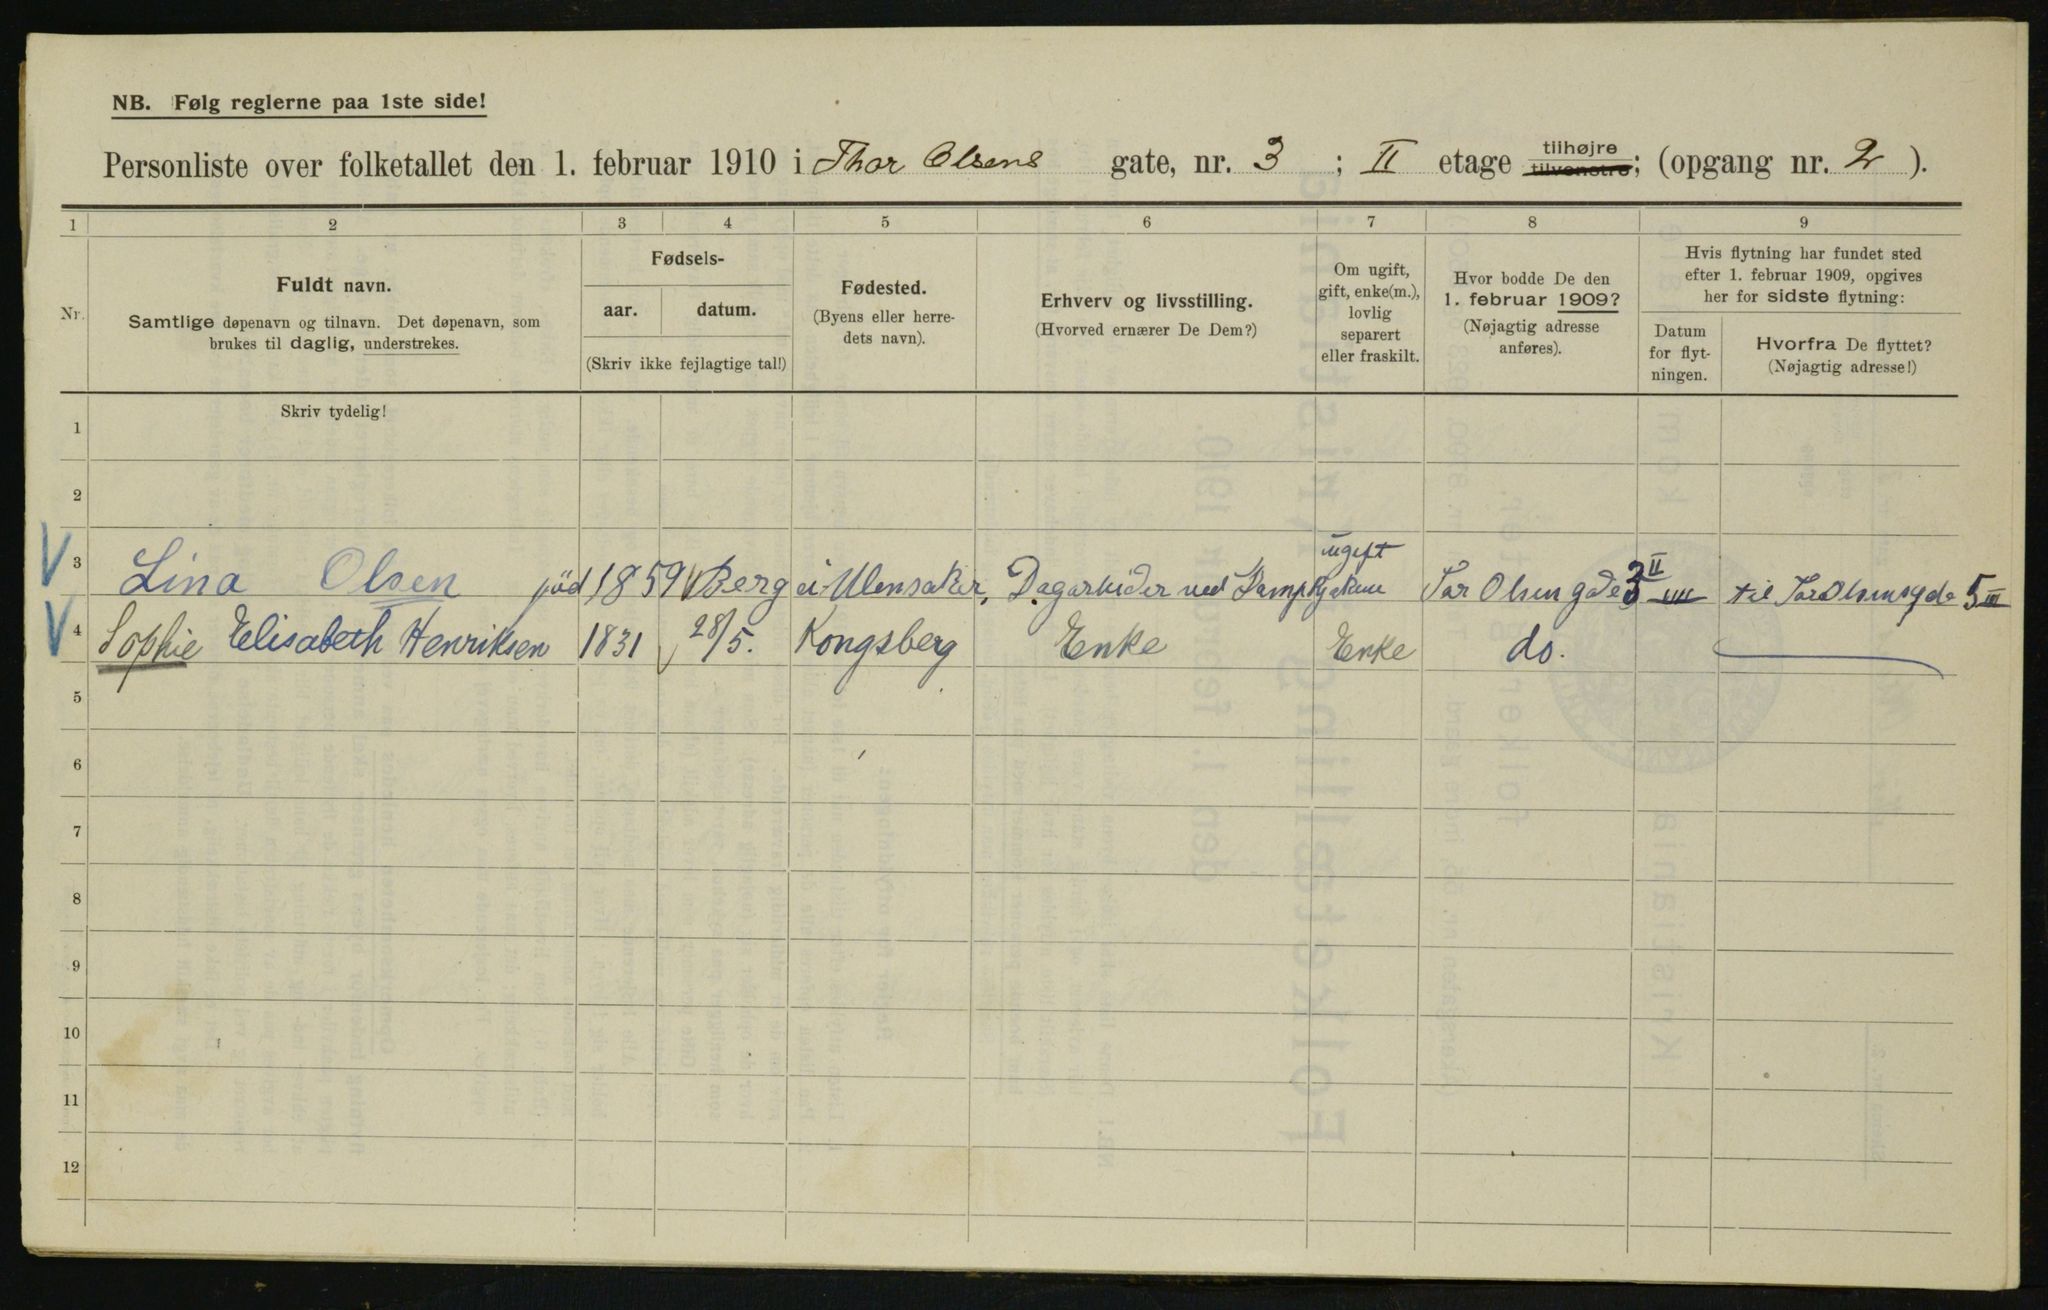 NB. Følg reglerne paa 1ste side!
Personliste over folketallet den 1. februar 1910 i Thor Olsens gate, nr. 3 ; II etage tilhøjre tilvenstre; (opgang nr. 2 ).
1 2 3 4 5 6 7 8 9
Nr.
Fuldt navn.
Samtlige døpenavn og tilnavn. Det døpenavn, som
brukes til daglig, understrekes.
Fødsels-
aar. datum.
(Skriv ikke fejlagtige tal!)
Fødested.
(Byens eller herre-
dets navn).
Erhverv og livsstilling.
(Hvorved ernærer De Dem?)
Om ugift,
gift, enke(m.),
lovlig
separert
eller fraskilt.
Hvor bodde De den
1. februar 1909?
(Nøjagtig adresse
anføres).
Hvis flytning har fundet sted
efter 1. februar 1909, opgives
her for sidste flytning:
Datum
for flyt-
ningen.
Hvorfra De flyttet?
(Nøjagtig adresse!)
Skriv tydelig!
1
2
3 Lina Olsen föd 1859 Berg i Ulensaker, Dagarbider ved ugift Tor Olsengade 3 II til Tor Olsensgde 5 III
4 Sophie Elisabeth Henriksen 1831 28/5. Kongsberg Enke Enke do.
5
6
7
8
9
10
11
12